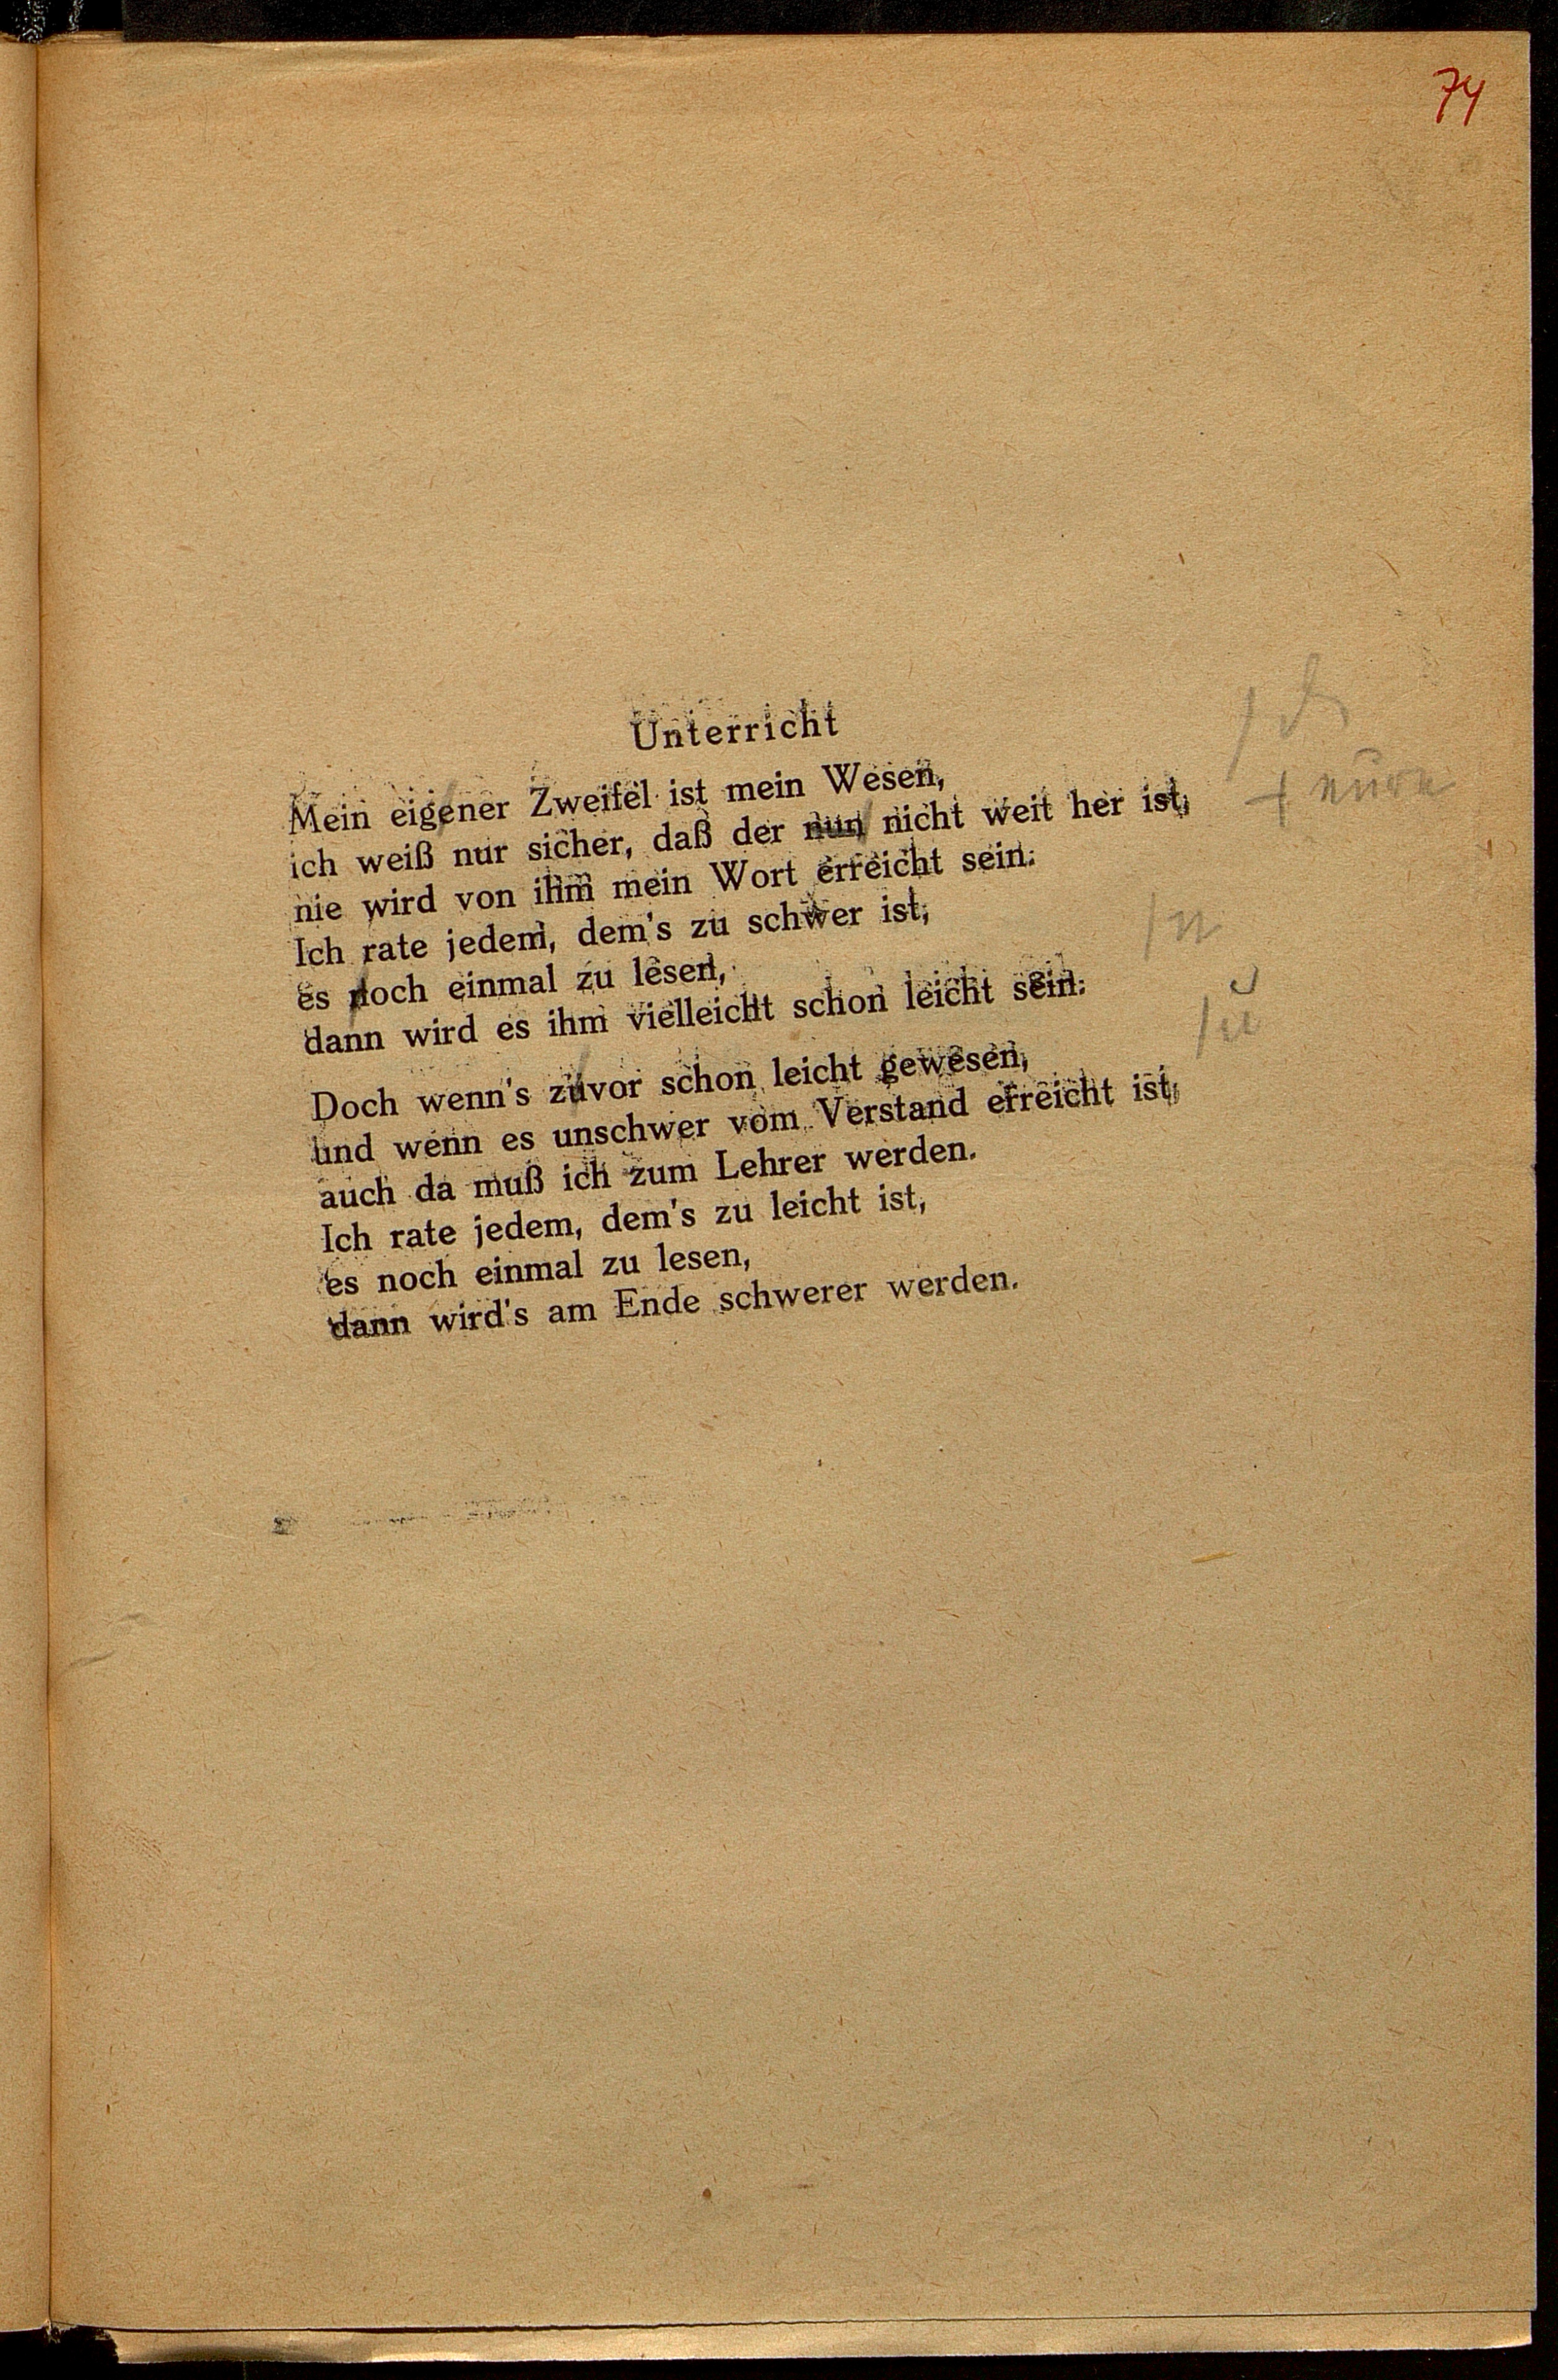 74
Unterricht
Mein eigener Zweifel ist mein Wesen,
ich weiß nur sicher, daß der nun nicht weit her ist;
nie wird von ihm mein Wort erreicht sein.
Ich rate jedem, dem's zu schwer ist,
es noch einmal zu lesen,
dann wird es ihm vielleicht schon leicht sein.
Doch wenn's zuvor schon leicht gewesen,
und wenn es unschwer vom Verstand erreicht ist,
auch da muß ich zum Lehrer werden.
Ich rate jedem, dem's zu leicht ist,
es noch einmal zu lesen,
dann wird's am Ende schwerer werden.